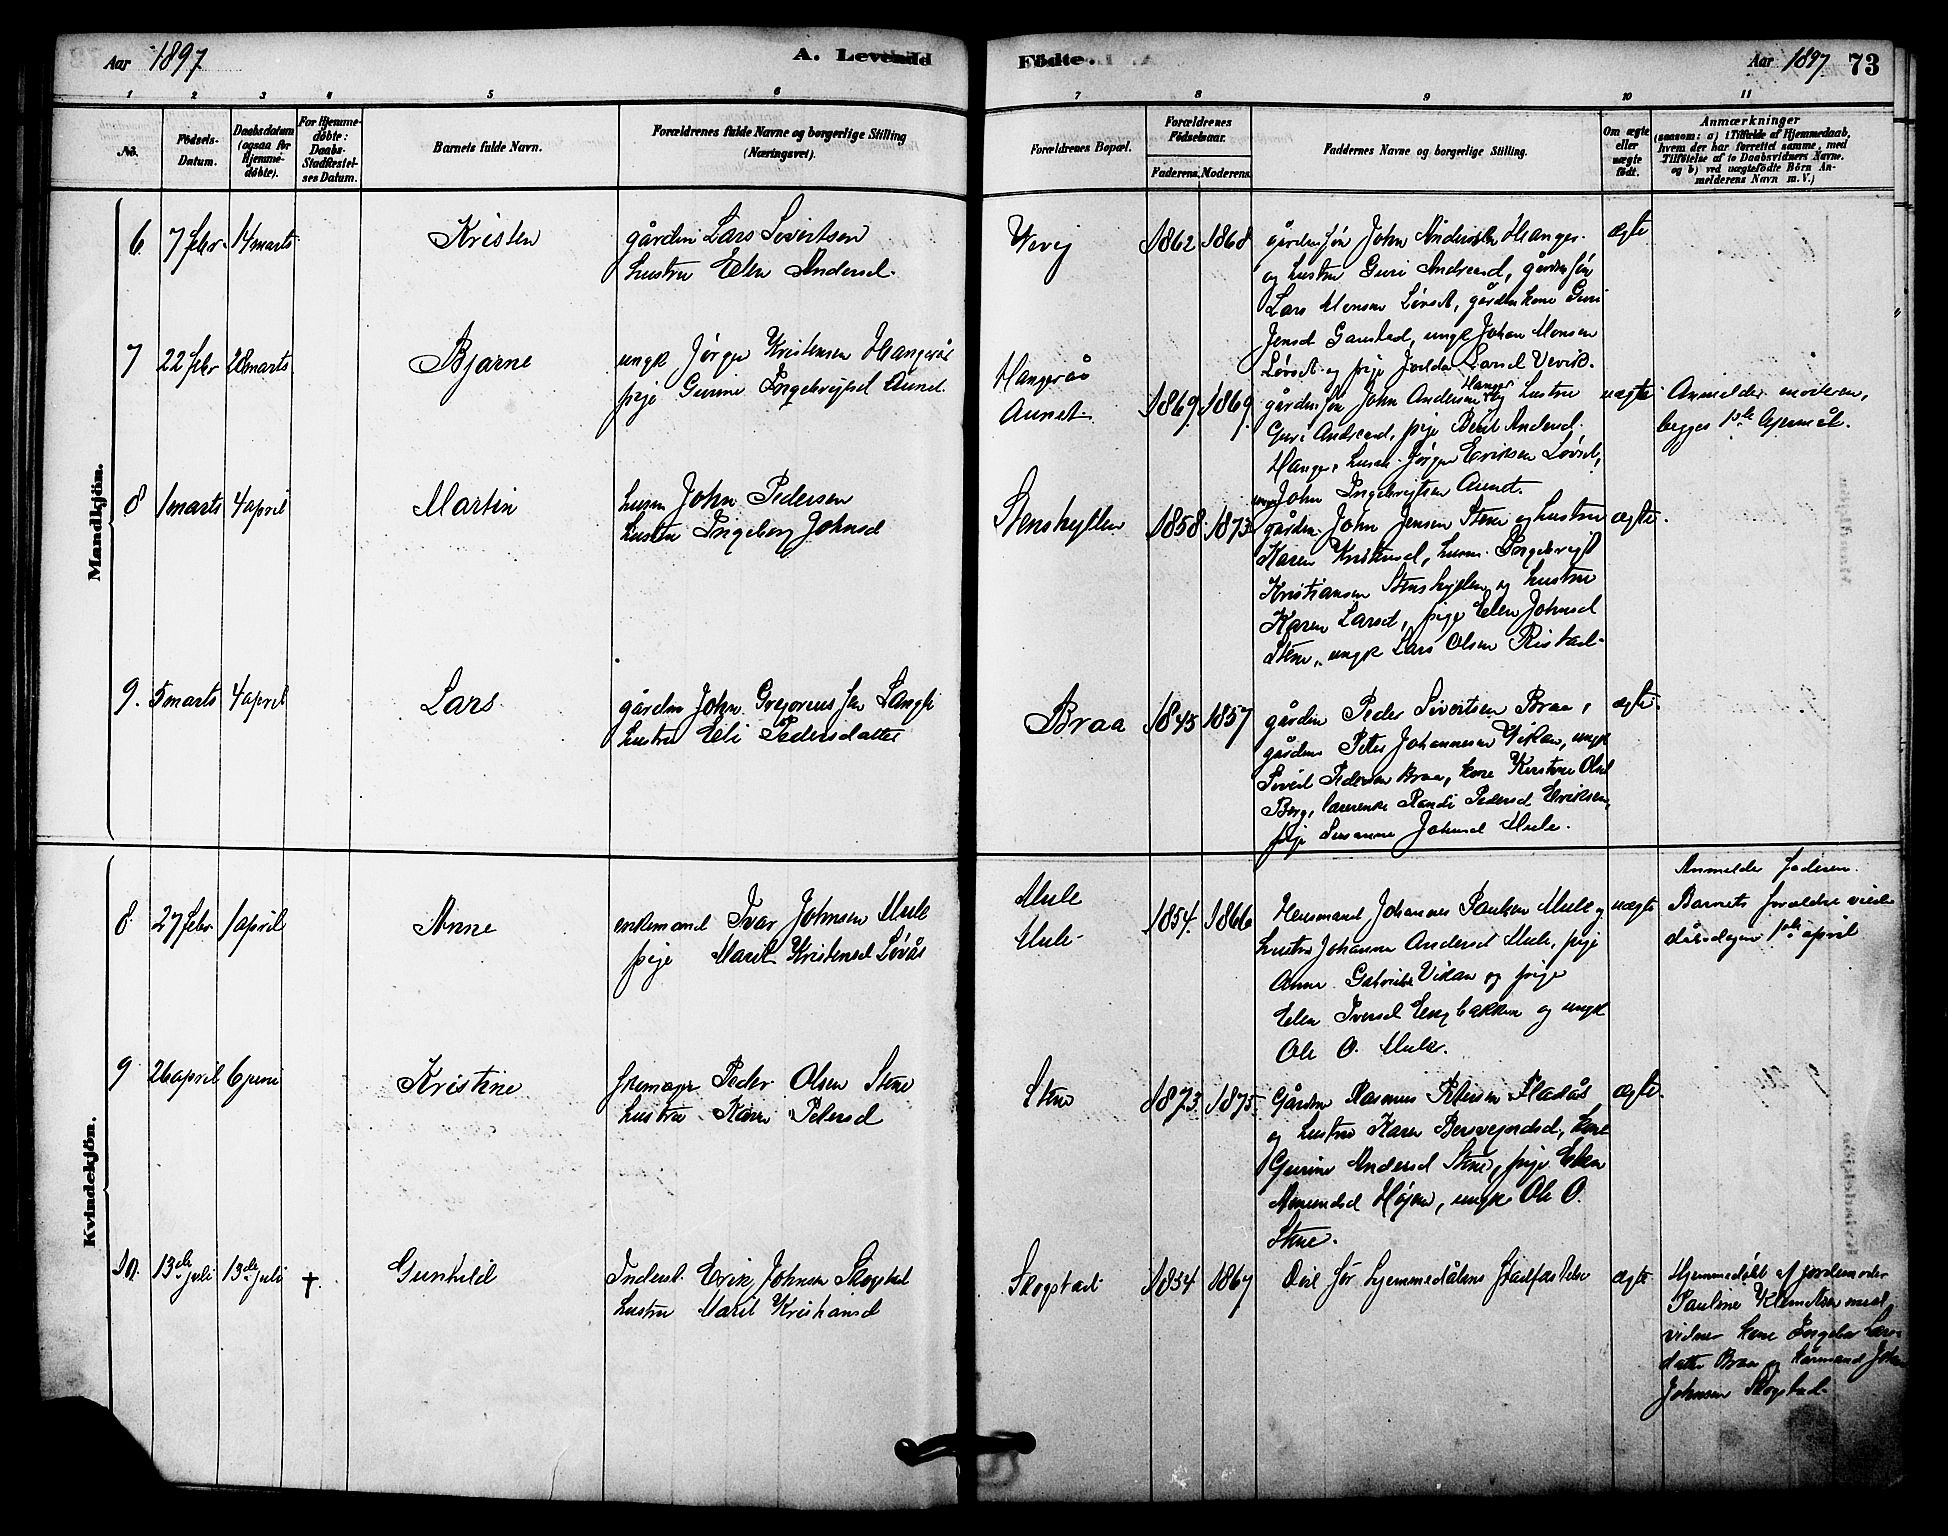 Aar 1897
A. Levende
Födte.
Aar 1897
73
1 2 3 4 5 6 7 8 9 10 11
No.
Födsels-Datum.
Daabsdatum (ogsaa for Hjemmedöbte).
For Hjemmedöbte: Daabs-Stadfæstelses Datum.
Barnets fulde Navn.
Forældrenes fulde Navne og borgerlige Stilling (Næringsvei).
Forældrenes Bopæl.
Forældrenes Födselsaar.
Faderens. Moderens.
Faddernes Navne og borgerlige Stilling.
Om ægte eller uægte födt.
Anmærkninger
(saasom: a) i Tilfælde af Hjemmedaab, hvem der har forrettet samme, med Tilföielse af to Daabsvidners Navne, og b) ved uægtefödte Börn Anmelderens Navn m. V.)
Mandkjön.
6 7 febr. 14 marts
Kristen
gårdm Lars Sivertsen
hustru Elen Andersd.
Vevej
1862 1868
gårdm John Andersen Hanger
og hustru Guri Andreasd,
Lars Monsen Løvset, gårdm kone Guri
Jensd Ganstad, ungk Johan Monsen
Løvset og pige Larsd
ægte
7 22 febr 28 marts
Bjarne
ungk Jørgen Kristensen Hangerås
pige Gurine Ingebrigtsd Aunet.
Hangerås
Aunet.
1869. 1869.
John Andersen Hanger og hustru
Guri Andreasd, pige Berit Andersd.
Hanger, husm. Jørgen Eriksen Løvset,
John Ingebrigtsen Aunet.
uægte
Anmelder moderen,
begges 1ste lejermål.
8 1 marts 4 april
Martin
husm John Pedersen
hustru Ingeborg Johnsd
Stenshyllen
1858. 1873.
gårdm. John Jensen Stene og hustru
Karen Kristensd, husm. Ingebrigt
Kristiansen Stenshyllen og hustru
Karen Larsd, pige Elen Johnsd
Stene, ungk Lars Olsen Ristad.
ægte.
9. 5 marts 4 april
Lars
gårdm John Gregoriussen
hustru Eli Pedersdatter
Braa
1845 1857
gårdm Peder Sivertsen Braa,
gårdm Peter Johannesen Vikan, ungk
Sivert Pedersen Braa, kone Kirstine Olsd
Berg, lærerenke Randi Pedersd Eriksen,
pige Susanne Johnsd Mule.
ægte.
Kvindekjön.
8. 27 febr 1 april
Anne
enkemand Ivar Johnsen Mule
pige Marit Kristensd Løvås
Mule
Mule.
1854. 1866
Husmand Johannes Paulsen Mule og
hustru Johanna Andersd Mule, pige
Anna Vikan og pige
Elen Iversd Engbakken og ungk
Ole O. Mule.
uægte
Anmelder faderen.
Barnets forældre viede
dåbsdagen 1ste april
9 26 april 6 juni
Kristine
Peder Olsen Stene
hustru Karen Petersd
Stene
1873. 1875.
Gårdm Rasmus Petersen Fladås
og hustru Karen Bersvendsd, kone
Gurine Andersd Stene, pige Elen
Amundsd Højem, ungk Ole O.
Stene.
ægte.
10. 13de juli 13de juli †
Gunhild
Inderst. Erik Johnsen Skogstad
hustru Marit Kristiansd
Skogstad
1854 1867
Død før hjemmedåbens stadfæstelse
ægte.
Hjemmedøbt af jordemoder
Pauline Klemetsen med
vidner kone Ingebor Lars-
datter Braa og kårmand John
Johnsen Skogstad.